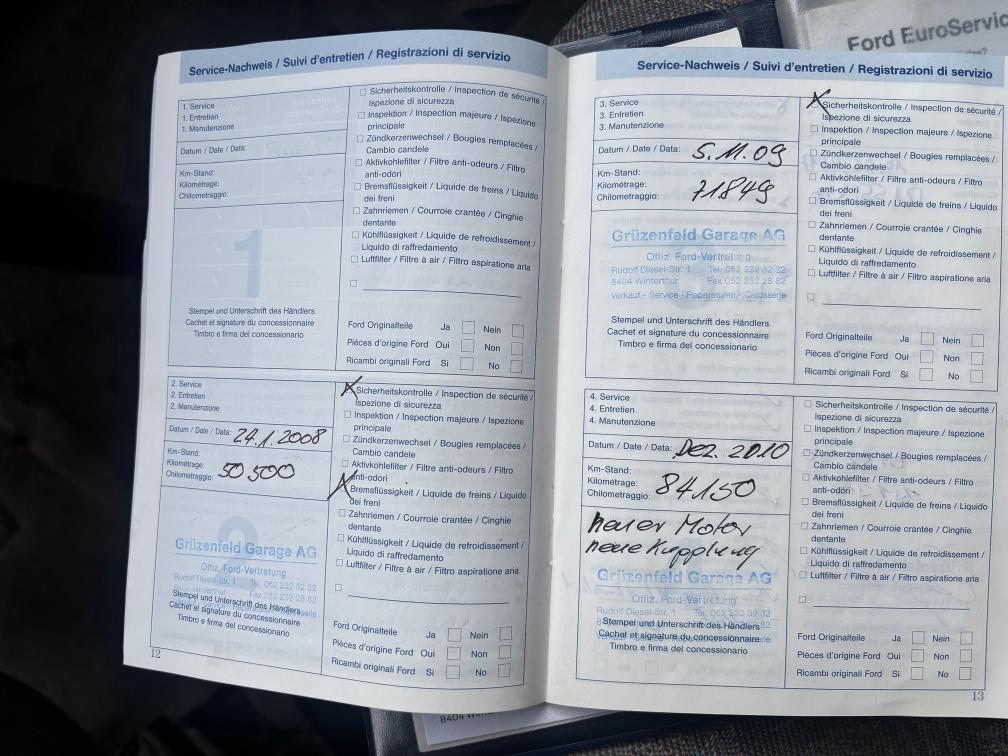 Ford EuroServic
Service-Nachweis / Suivi d'entretien / Registrazioni di servizio
1. Service
1. Entretien
1. Manutenzione
Datum / Date / Data:
Km-Stand:
Kilométrage:
Chilometraggio:
1
Stempel und Unterschrift des Händlers
Cachet et signature du concessionnaire
Timbro e firma del concessionario
Sicherheitskontrolle / Inspection de sécurité /
Ispezione di sicurezza
Inspektion / Inspection majeure / Ispezione
principale
Zündkerzenwechsel / Bougies remplacées /
Cambio candele
Aktivkohlefilter / Filtre anti-odeurs / Filtro
anti-odori
Bremsflüssigkeit / Liquide de freins / Liquido
dei freni
Zahnriemen / Courroie crantée / Cinghie
dentante
Kühlflüssigkeit / Liquide de refroidissement /
Liquido di raffredamento
Luftfilter / Filtre à air / Filtro aspiratione aria
Ford Originalteile Ja Nein
Pièces d'origine Ford Oui Non
Ricambi originali Ford Si No
2. Service
2. Entretien
2. Manutenzione
Datum / Date / Data: 24.1.2008
Km-Stand:
Kilométrage:
Chilometraggio: 50500
Grüzenfeld Garage AG
Offiz. Ford-Vertretung
Rudolf Diesel-Str. 1 Tel. 052 232 32 32
Winterthur Fax 052 232 28 82
Stempel und Unterschrift des Händlers
Cachet et signature du concessionnaire
Timbro e firma del concessionario
Sicherheitskontrolle / Inspection de sécurité /
Ispezione di sicurezza
Inspektion / Inspection majeure / Ispezione
principale
Zündkerzenwechsel / Bougies remplacées /
Cambio candele
Aktivkohlefilter / Filtre anti-odeurs / Filtro
anti-odori
Bremsflüssigkeit / Liquide de freins / Liquido
dei freni
Zahnriemen / Courroie crantée / Cinghie
dentante
Kühlflüssigkeit / Liquide de refroidissement /
Liquido di raffredamento
Luftfilter / Filtre à air / Filtro aspiratione aria
Ford Originalteile Ja Nein
Pièces d'origine Ford Oui Non
Ricambi originali Ford Si No
12
Service-Nachweis / Suivi d'entretien / Registrazioni di servizio
3. Service
3. Entretien
3. Manutenzione
Datum / Date / Data: 5.11.09
Km-Stand:
Kilométrage:
Chilometraggio: 71849
Grüzenfeld Garage AG
Offiz. Ford-Vertretung
Rudolf Diesel-Str. 1 Tel. 052 232 32 32
8404 Winterthur Fax 052 232 28 82
Verkauf - Service - Reparaturen - Carosserie
Stempel und Unterschrift des Händlers
Cachet et signature du concessionnaire
Timbro e firma del concessionario
Sicherheitskontrolle / Inspection de sécurité /
Ispezione di sicurezza
Inspektion / Inspection majeure / Ispezione
principale
Zündkerzenwechsel / Bougies remplacées /
Cambio candele
Aktivkohlefilter / Filtre anti-odeurs / Filtro
anti-odori
Bremsflüssigkeit / Liquide de freins / Liquido
dei freni
Zahnriemen / Courroie crantée / Cinghie
dentante
Kühlflüssigkeit / Liquide de refroidissement /
Liquido di raffredamento
Luftfilter / Filtre à air / Filtro aspiratione aria
Ford Originalteile Ja Nein
Pièces d'origine Ford Oui Non
Ricambi originali Ford Si No
4. Service
4. Entretien
4. Manutenzione
Datum / Date / Data: Dez. 2010
Km-Stand:
Kilométrage:
Chilometraggio: 84150
neuer Motor
neue Kupplung
Grüzenfeld Garage AG
Offiz. Ford-Vertretung
Rudolf Diesel-Str. 1 Tel. 052 232 32 32
Stempel und Unterschrift des Händlers
Cachet et signature du concessionnaire
Timbro e firma del concessionario
Sicherheitskontrolle / Inspection de sécurité /
Ispezione di sicurezza
Inspektion / Inspection majeure / Ispezione
principale
Zündkerzenwechsel / Bougies remplacées /
Cambio candele
Aktivkohlefilter / Filtre anti-odeurs / Filtro
anti-odori
Bremsflüssigkeit / Liquide de freins / Liquido
dei freni
Zahnriemen / Courroie crantée / Cinghie
dentante
Kühlflüssigkeit / Liquide de refroidissement /
Liquido di raffredamento
Luftfilter / Filtre à air / Filtro aspiratione aria
Ford Originalteile Ja Nein
Pièces d'origine Ford Oui Non
Ricambi originali Ford Si No
13
8404